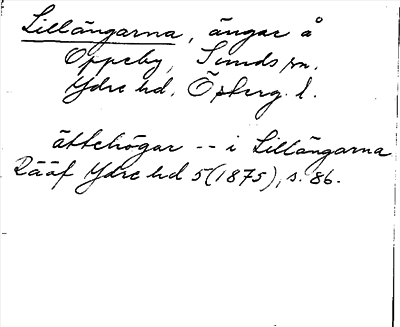 Lillängarna, ängar å
Oppeby, Sunds sn.
Ydre hd. Östberg. l.
ättehögar -- i Lillängarna
Rääf Ydre hd 5 (1875), s. 86.